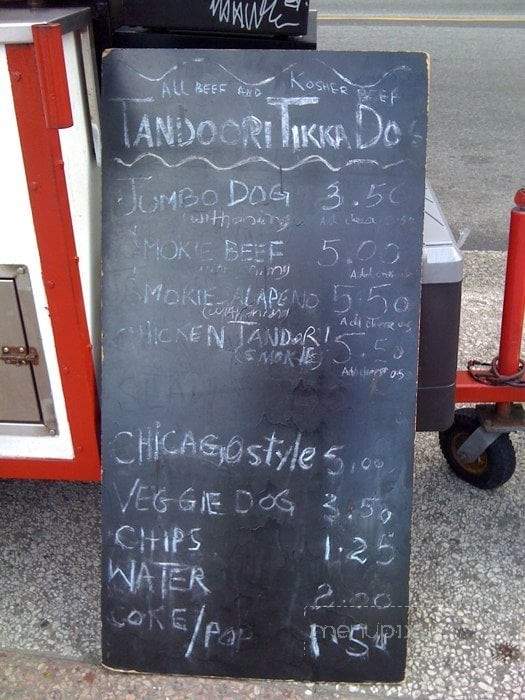 ALL BEEF AND KOSHER BEEF
TANDOORI TIKKA DOG
JUMBO DOG 3.50
with
SMOKIE BEEF 5.00
SMOKIE JALAPENO 5.50
CHICKEN TANDORI 5.50
(SMOKIE)
CHICAGO style 5.00
VEGGIE DOG 3.50
CHIPS 1.25
WATER 2.00
COKE/POP 1.50
menupix